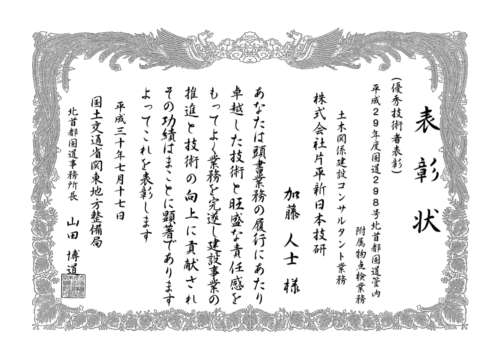 表彰状
(優秀技術者表彰)
平成29年度国道298号北首都国道管内
附属物点検業務
土木関係建設コンサルタント業務
株式会社片平新日本技研
加藤 人士 様
あなたは頭書業務の履行にあたり
卓越した技術と旺盛な責任感を
もってよく業務を完遂し建設事業の
推進と技術の向上に貢献され
その功績はまことに顕著であります
よってこれを表彰します
平成三十年七月十七日
国土交通省関東地方整備局
北首都国道事務所長 山田 博道